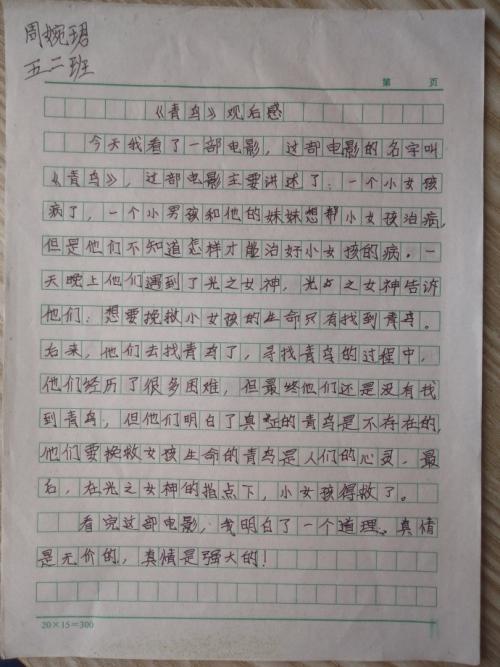 周婉珺
五二班
第 页
《青鸟》观后感
今天我看了一部电影，这部电影的名字叫
《青鸟》，这部电影主要讲述了：一个小女孩
病了，一个小男孩和他的妹妹想帮小女孩治病，
但是他们不知道怎样才能治好小女孩的病。一
天晚上他们遇到了光之女神，光之女神告诉
他们：想要挽救小女孩的生命只有找到青鸟。
后来，他们去找青鸟了，寻找青鸟的过程中，
他们经历了很多困难，但最终他们还是没有找
到青鸟，但他们明白了真正的青鸟是不存在的，
他们要挽救女孩生命的青鸟是人们的心灵，最
后，在光之女神的指点下，小女孩得救了。
看完这部电影，我明白了一个道理、真情
是无价的，真情是强大的！
20×15=300